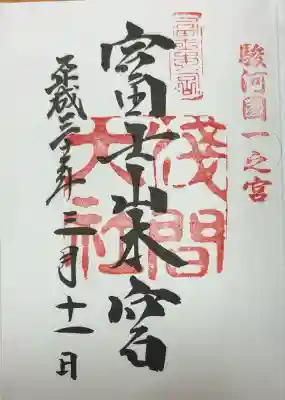 駿河國一之宮
富士山本宮
淺間
大社
平成三十年三月十一日